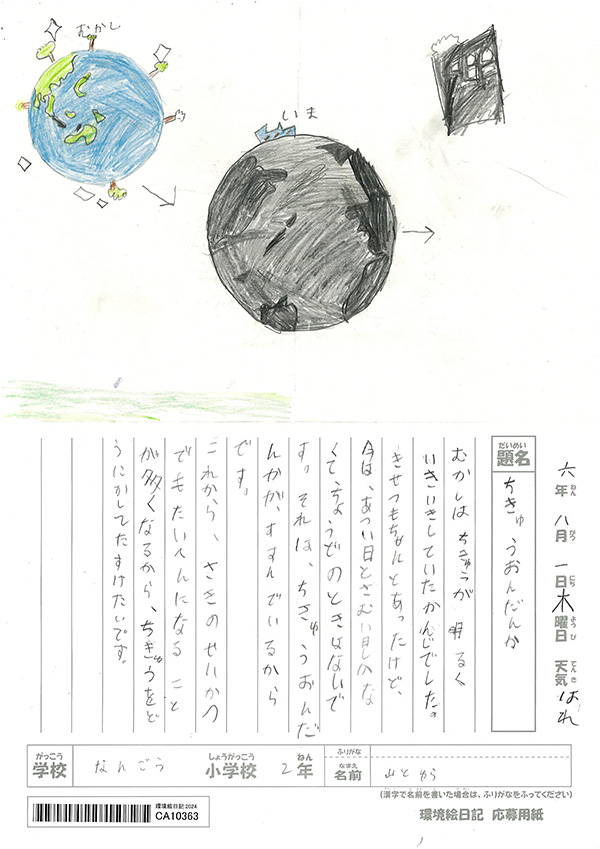 むかし
いま
六年 八月 一日 木曜日 天気 はれ
ねん がつ にち ようび てんき
だいめい
題名
ちきゅうおんだんか
むかしは ちきゅうが 明るく
いきいきしていたかんじでした。
きせつもちゃんとあったけど、
今は、あつい日とさむい日しかな
くて、ちょうどのときはないで
す。それは、ちきゅうおんだ
んかが、すすんでいるから
です。
これから、さきのせいかつ
でもたいへんになること
が多くなるから、ちきゅうをど
うにかしてたすけたいです。
がっこう
学校
なんごう
しょうがっこう
小学校
2年
ねん
ふりがな
なまえ
名前
山と
(漢字で名前を書いた場合は、ふりがなをふってください)
環境絵日記2024
CA10363
環境絵日記 応募用紙